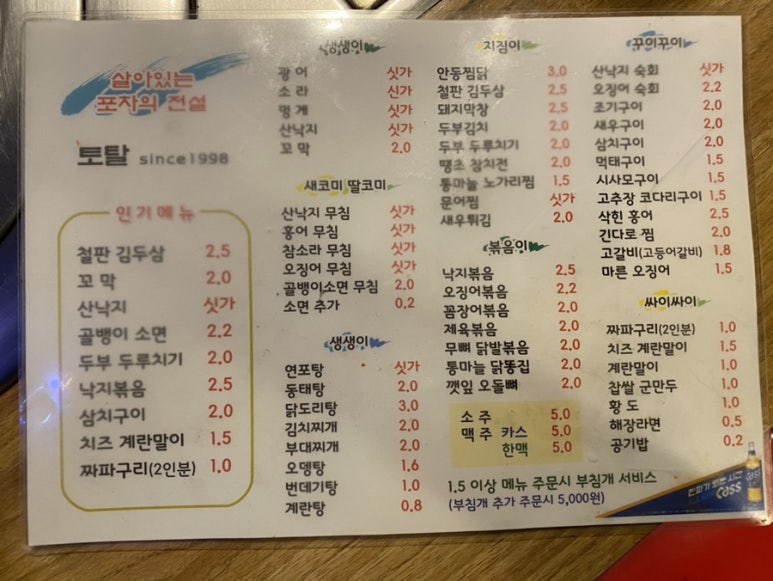 살아있는
포차의 전설
토탈 since1998
인기메뉴
철판 김두삼 2.5
꼬 막 2.0
산낙지 싯가
골뱅이 소면 2.2
두부 두루치기 2.0
낙지볶음 2.5
삼치구이 2.0
치즈 계란말이 1.5
짜파구리(2인분) 1.0
생생이
광 어 싯가
소 라 싯가
멍 게 싯가
산낙지 싯가
꼬 막 2.0
새코미 딸코미
산낙지 무침 싯가
홍어 무침 싯가
참소라 무침 싯가
오징어 무침 싯가
골뱅이소면 무침 2.0
소면 추가 0.2
생생이
연포탕 싯가
동태탕 2.0
닭도리탕 3.0
김치찌개 2.0
부대찌개 2.0
오뎅탕 1.6
번데기탕 1.0
계란탕 0.8
지짐이
안동찜닭 3.0
철판 김두삼 2.5
돼지막창 2.5
두부김치 2.0
두부 두루치기 2.0
땡초 참치전 2.0
통마늘 노가리찜 1.5
문어찜 싯가
새우튀김 2.0
볶음이
낙지볶음 2.5
오징어볶음 2.2
꼼장어볶음 2.0
제육볶음 2.0
무뼈 닭발볶음 2.0
통마늘 닭똥집 2.0
깻잎 오돌뼈 2.0
소 주 5.0
맥 주 카스 5.0
한맥 5.0
1.5 이상 메뉴 주문시 부침개 서비스
(부침개 추가 주문시 5,000원)
꾸이꾸이
산낙지 숙회 싯가
오징어 숙회 2.2
조기구이 2.0
새우구이 2.0
삼치구이 2.0
먹태구이 1.5
시사모구이 1.5
고추장 코다리구이 1.5
삭힌 홍어 2.5
긴다로 찜 2.0
고갈비(고등어갈비) 1.8
마른 오징어 1.5
싸이싸이
짜파구리(2인분) 1.0
치즈 계란말이 1.5
계란말이 1.0
찹쌀 군만두 1.0
황 도 1.0
해장라면 0.5
공기밥 0.2
Cass